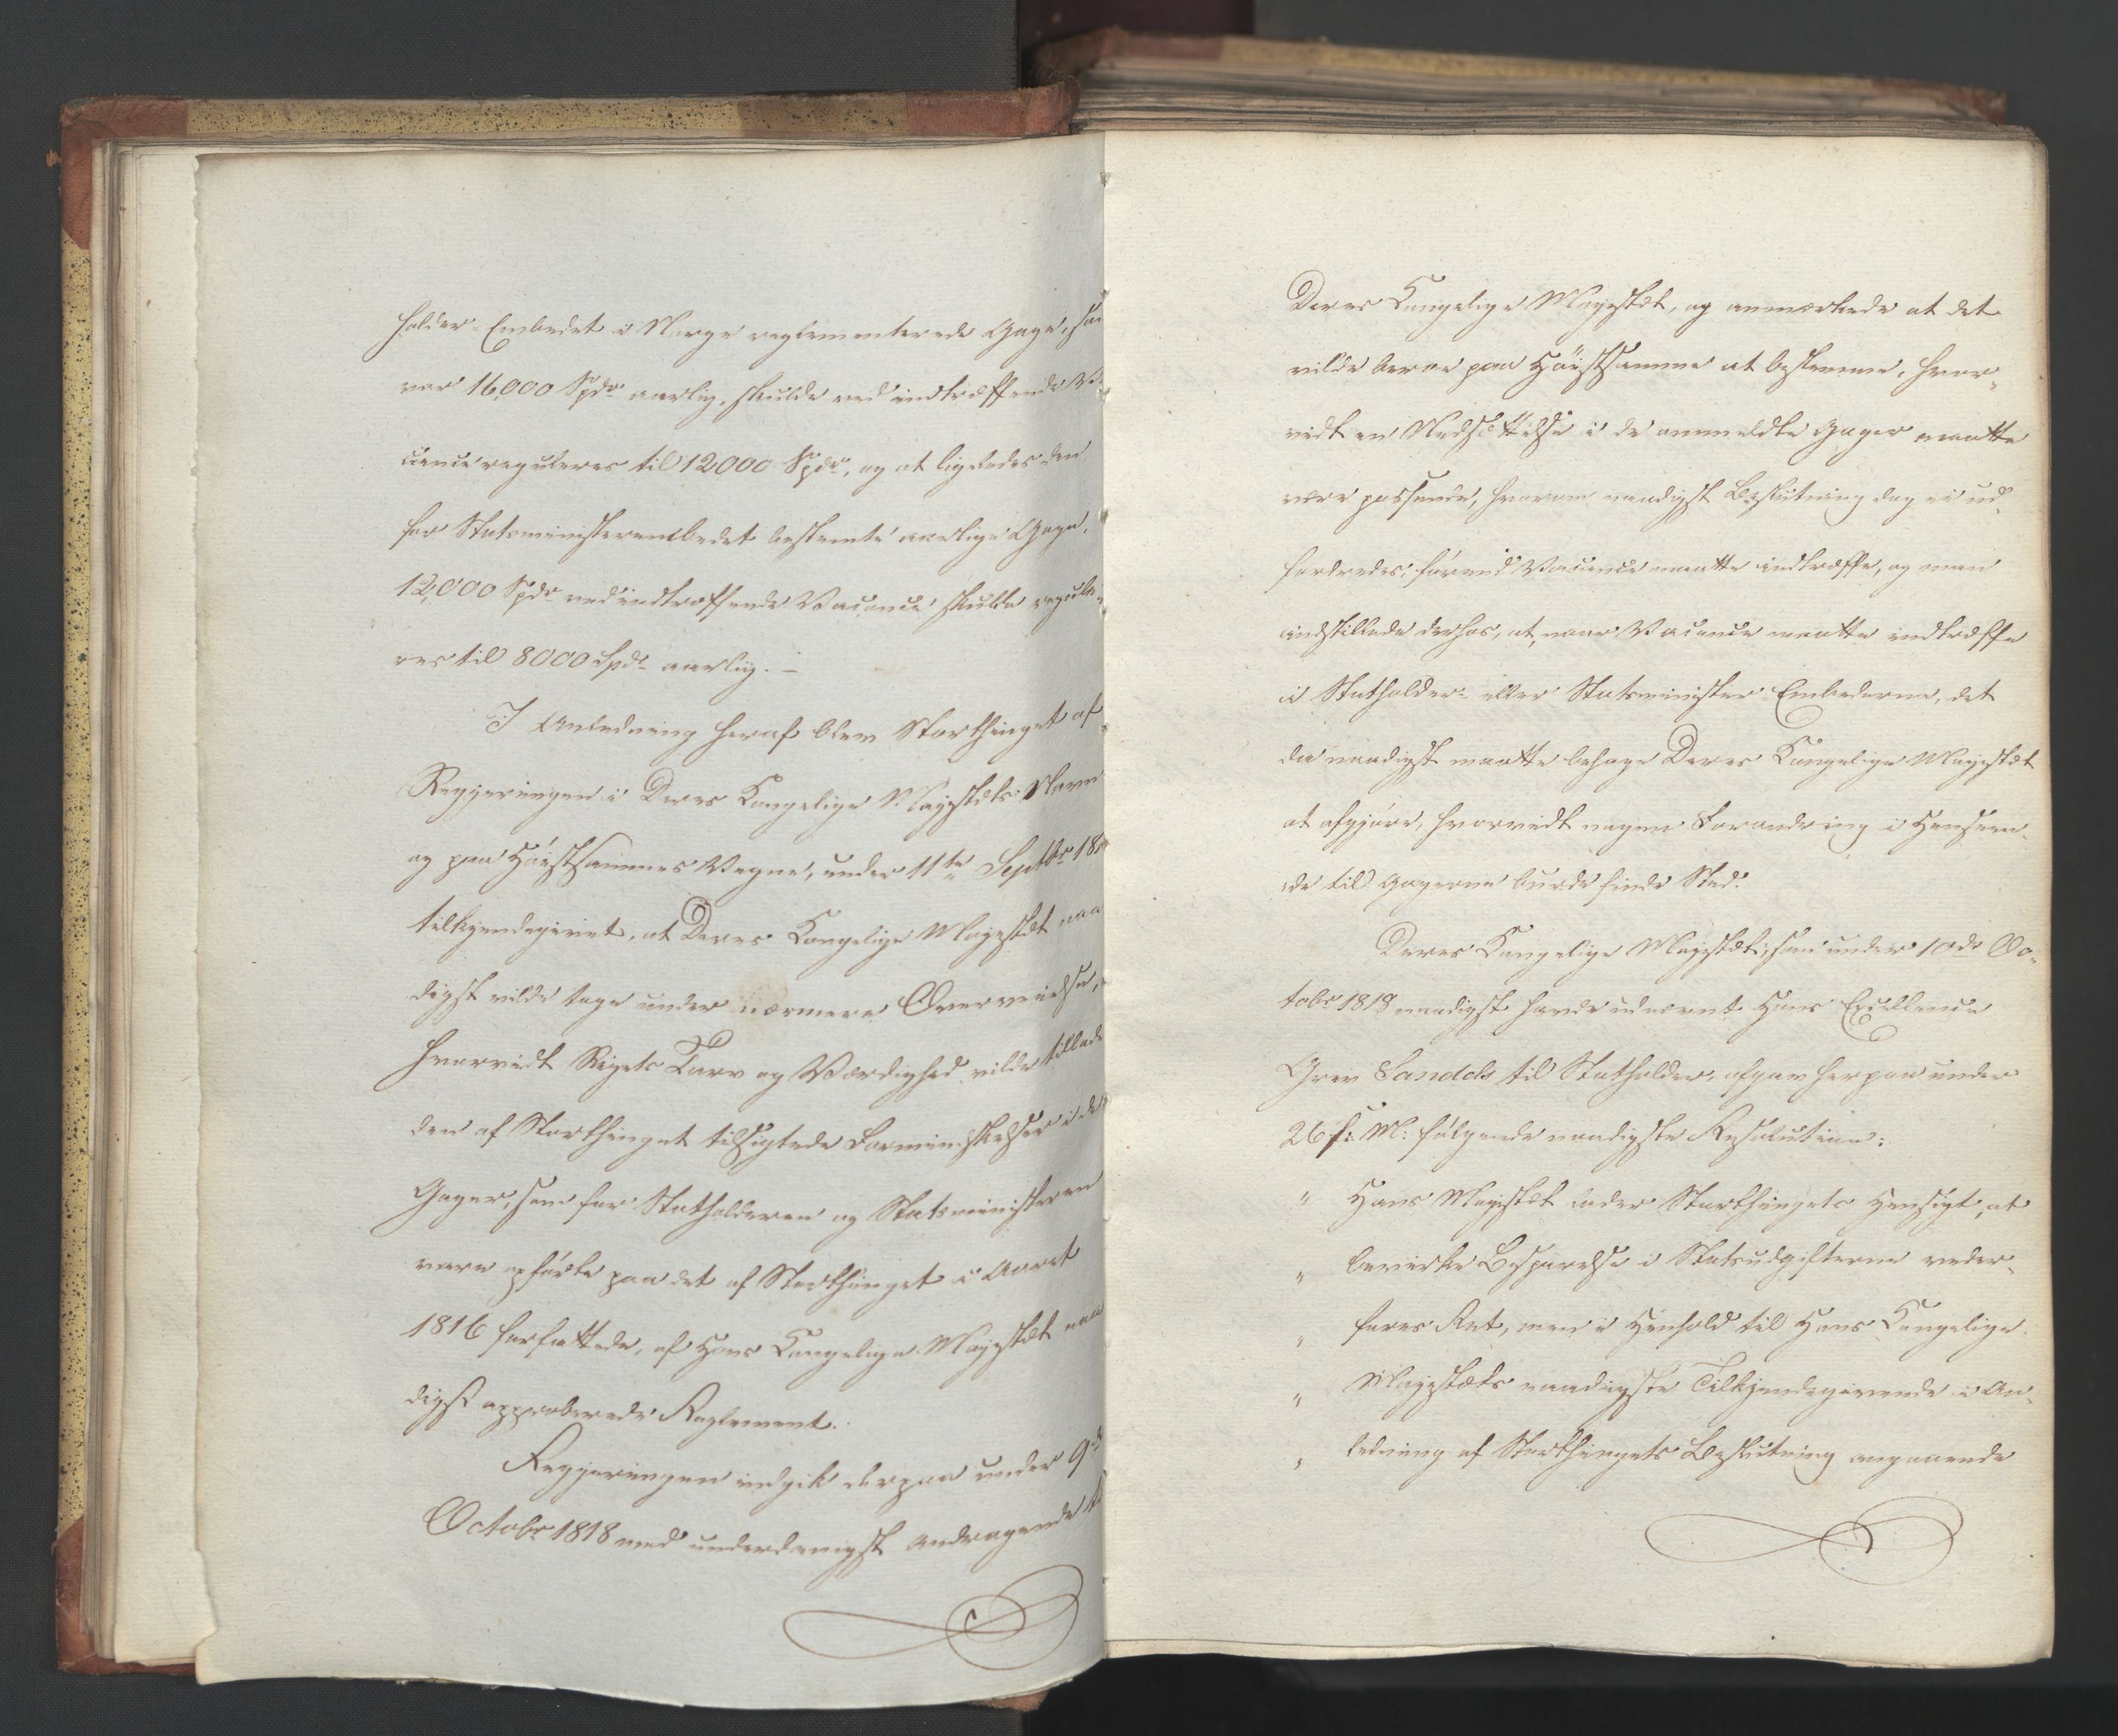 holder-Embedet i Norge reglementerede Gage, som
var 16,000 Spdr aarlig, skulde ved indtræffende Va
cance reguleres til 12000 Spdr, og at ligeledes den
for Statsministerembedet bestemte aarlige Gage,
12,000 Spdr ved indtræffende Vacance skulde regule-
res til 8000 Spdr aarlig. –
I Anledning heraf blev Storthinget af
Regjeringen i Deres Kongelige Majestæts Navn
og paa Høistsammes Vegne, under 11te Septbr 18
tilkjendegivet, at Deres Kongelige Majestæt naa
digst vilde tage under nærmere Overveielse,
hvorvidt Rigets Tarv og Værdighed vilde tillade
den af Storthinget tilsigtede Formindskelse i de
Gager, som for Statholderen og Statsministeren
vare opførte paa det af Storthinget i Aaret
1816 forfattede, af Hans Kongelige Majestæt naa
digst approberede Reglement.
Regjeringen indgik derpaa under 9de
Octobr 1818 med underdanigst Andragende til
Deres Kongelige Majestæt, og anmærkede at det
vilde beroe paa Høistsamme at bestemme, hvor-
vidt en Nedsættelse i de anmeldte Gager maatte
være passende, hvorom naadigst Beslutning dog ei ud-
fordredes, førend Vacance maatte indtræffe, og man
indstillede derhos, at, naar Vacance maatte indtræffe
i Statholder- eller Statsminister-Embederne, det
da naadigst maatte behage Deres Kongelige Majestæt
at afgjøre, hvorvidt nogen Forandring i Henseen-
de til Gagerne burde finde Sted.
Deres Kongelige Majestæt, som under 10de Oc-
tobr 1818 naadigst havde udnævnt Hans Excellence
Grev Sandels til Statholder, afgav herpaa under
26 s: M: følgende naadigste Resolution:
" Hans Majestæt lader Storthingets Hensigt, at
" bevirke Besparelse i Statsudgifterne veder-
" fares Ret, men i Henhold til Hans Kongelige
" Majestæts naadigste Tilkjendegivende i An-
" ledning af Storthingets Beslutning angaaende